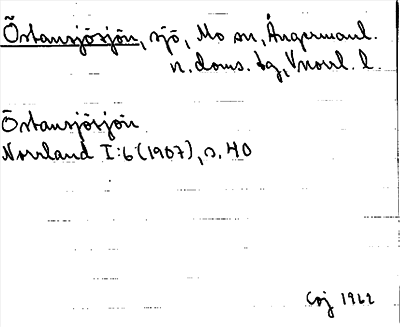 Östansjösjön, sjö, Mo sn, Ångermanl.
n. doms. bg, Vnorrl. l.
Östansjösjön
Norrland I:6 (1907), s. 40
Csj 1962